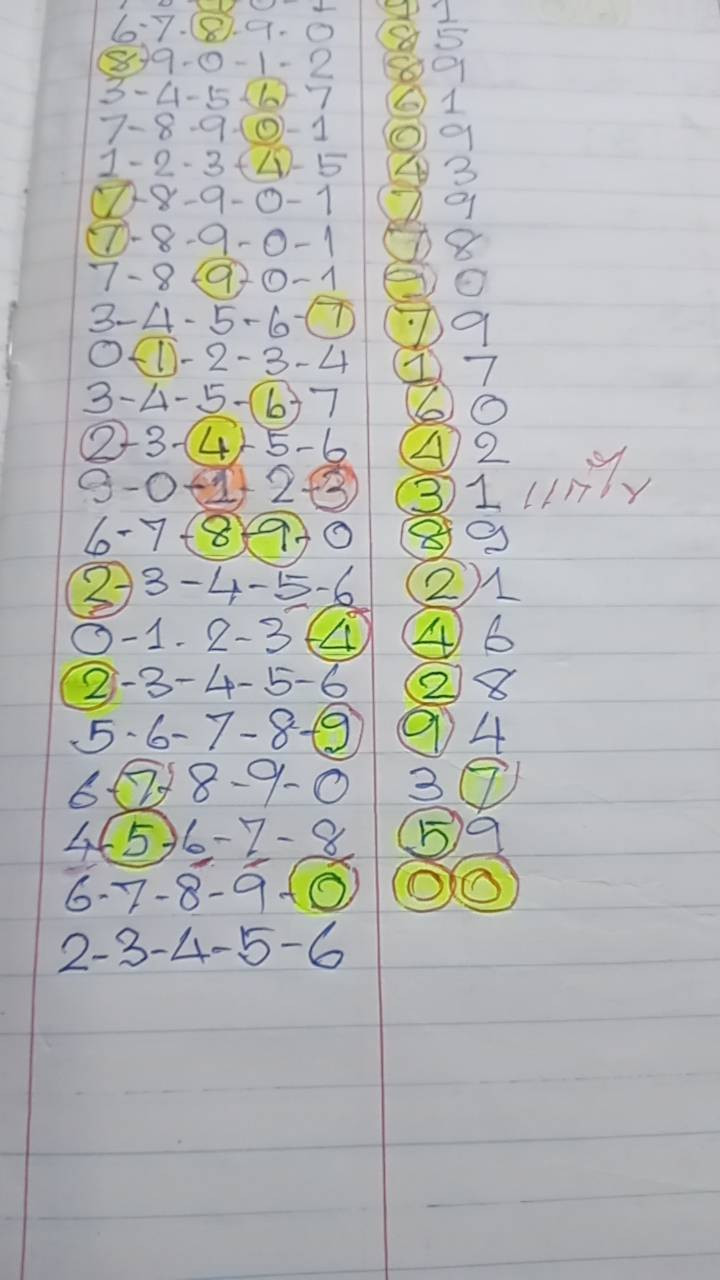 6-7-8-9-0 85
8-9-0-1-2 89
3-4-5-6-7 61
7-8-9-0-1 09
1-2-3-4-5 43
7-8-9-0-1 79
7-8-9-0-1 78
7-8-9-0-1 90
3-4-5-6-7 79
0-1-2-3-4 17
3-4-5-6-7 60
2-3-4-5-6 42
9-0-1-2-3 31
6-7-8-9-0 89
2-3-4-5-6 21
0-1-2-3-4 46
2-3-4-5-6 28
5-6-7-8-9 94
6-7-8-9-0 37
4-5-6-7-8 59
6-7-8-9-0 00
2-3-4-5-6